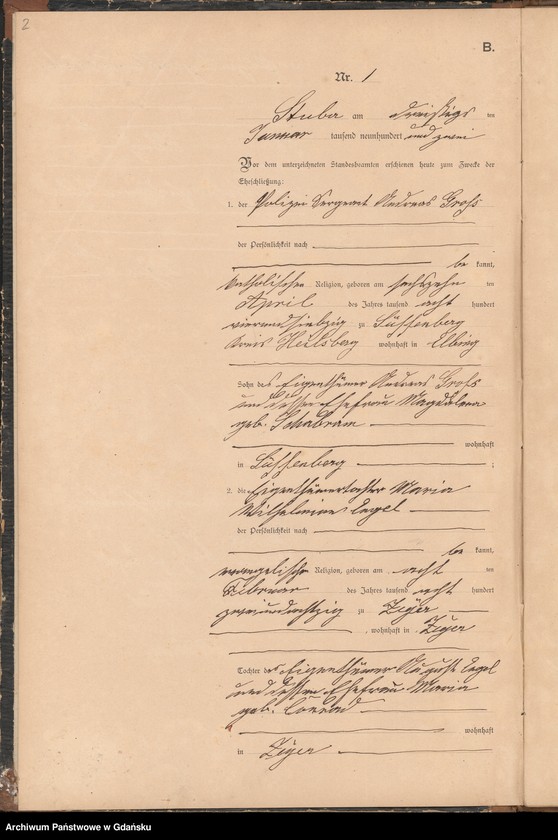 2
B.
Nr. 1
Stuba am dreißigs ten
Januar tausend neunhundert und zwei
Vor dem unterzeichneten Standesbeamten erschienen heute zum Zwecke der
Eheschließung:
1. der Polizei Sergeant Andreas Groß
der Persönlichkeit nach
be kannt,
katholischer Religion, geboren am sechszehn ten
April des Jahres tausend acht hundert
vierundsiebzig zu
Kreis Heilsberg wohnhaft in Elbing
Sohn des Eigenthümer Andreas Groß
und dessen Ehefrau Magdalena
geb. Schabram
wohnhaft
in ;
2. die Eigenthümertochter Maria
Wilhelmine
der Persönlichkeit nach
be kannt,
evangelischer Religion, geboren am acht ten
Februar des Jahres tausend acht hundert
zweiundachtzig zu Zeyer
, wohnhaft in Zeyer
Tochter des Eigenthümer August
und dessen Ehefrau Maria
geb. Conrad
wohnhaft
in Zeyer
Archiwum Państwowe w Gdańsku